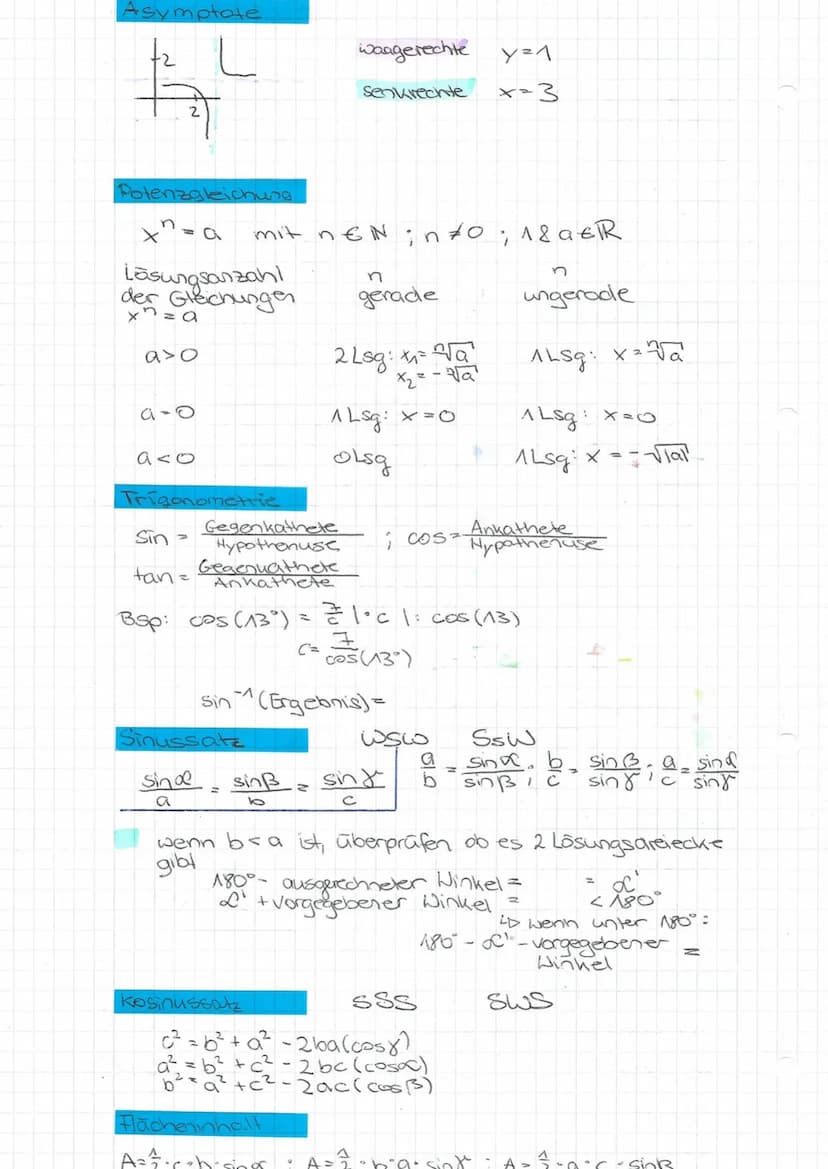 Asymptote
2
2
waagerechte y=1
senkrechte x=3
Potenzgleichung
xⁿ = a mit n ∈ ℕ ; n≠0 ; 1 & a∈ℝ
Lösungsanzahl n n
der Gleichungen gerade ungerade
xⁿ = a
a>0 2 Lsg: x₁= ⁿ√a 1 Lsg: x = ⁿ√a
x₂ = - ⁿ√a
a=0 1 Lsg: x=0 1 Lsg: x=0
a<0 0 Lsg 1 Lsg: x = -√|a|
Trigonometrie
sin = Gegenkathete / Hypothenuse ; cos = Ankathete / Hypothenuse
tan = Gegenkathete / Ankathete
Bsp: cos(13°) = 7/c |·c |: cos(13)
c = 7 / cos(13°)
sin⁻¹(Ergebnis)=
Sinussatz WSW SsW
sinα/a = sinβ/b = sinγ/c a/b = sinα/sinβ ; b/c = sinβ/sinγ ; a/c = sinα/sinγ
wenn b<a ist, überprüfen ob es 2 Lösungsdreiecke
gibt
180° - ausgerechneter Winkel = = α'
α' + vorgegebener Winkel = < 180°
↳ wenn unter 180°:
180° - α' - vorgegebener =
Winkel
Kosinussatz SSS SWS
c² = b² + a² - 2ba(cosγ)
a² = b² + c² - 2bc(cosα)
b² = a² + c² - 2ac(cosβ)
Flächeninhalt
A=½·c·b·sinα ; A=½·b·a·sinγ ; A=½·a·c·sinβ